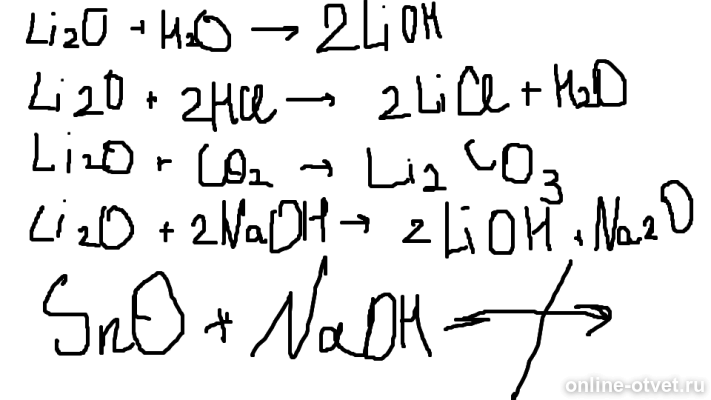 Li₂O + H₂O → 2LiOH
Li₂O + 2HCl → 2LiCl + H₂O
Li₂O + CO₂ → Li₂CO₃
Li₂O + 2NaOH → 2LiOH + Na₂O
SnO + NaOH ↛
online-otvet.ru